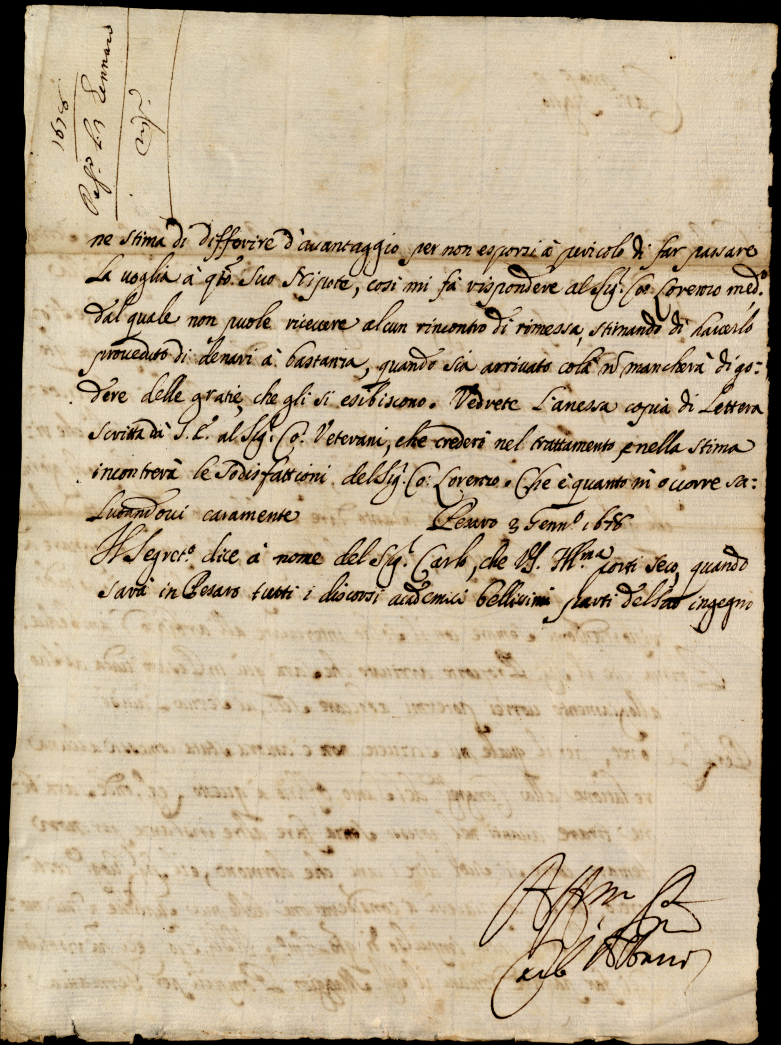 1678
Pes.º li 3 Gennaro
ne stima di differire d'avantaggio per non esporsi à pericolo di far passare
La voglia à q.to Suo Nipote, cosi mi fà rispondere al Sig.r Co: Lorenzo med.º
dal quale non puole ricevere alcun rincontro di rimessa, stimando di haverlo
proveduto di denari à bastanza, quando sia arrivato colà nò mancherà di go:
dere delle gratie, che gli si esibiscono. Vedrete l'anessa copia di Lettera
scritta dà S. E. al Sig.r Co: Veterani, che crederei nel trattamento, e nella stima
incontrerà le sodisfattioni del Sig.r Co: Lorenzo. Che è quanto m'occorre sa:
lutandovi caramente Pesaro 3 Genn.º 1678
Il Segret.º dice à nome del Sig.r Carlo, che V.S. Ill.ma porti seco, quando
sarà in Pesaro tutti i discorsi academici bellissimi parti del suo ingegno
Aff.mo
Carlo Albani